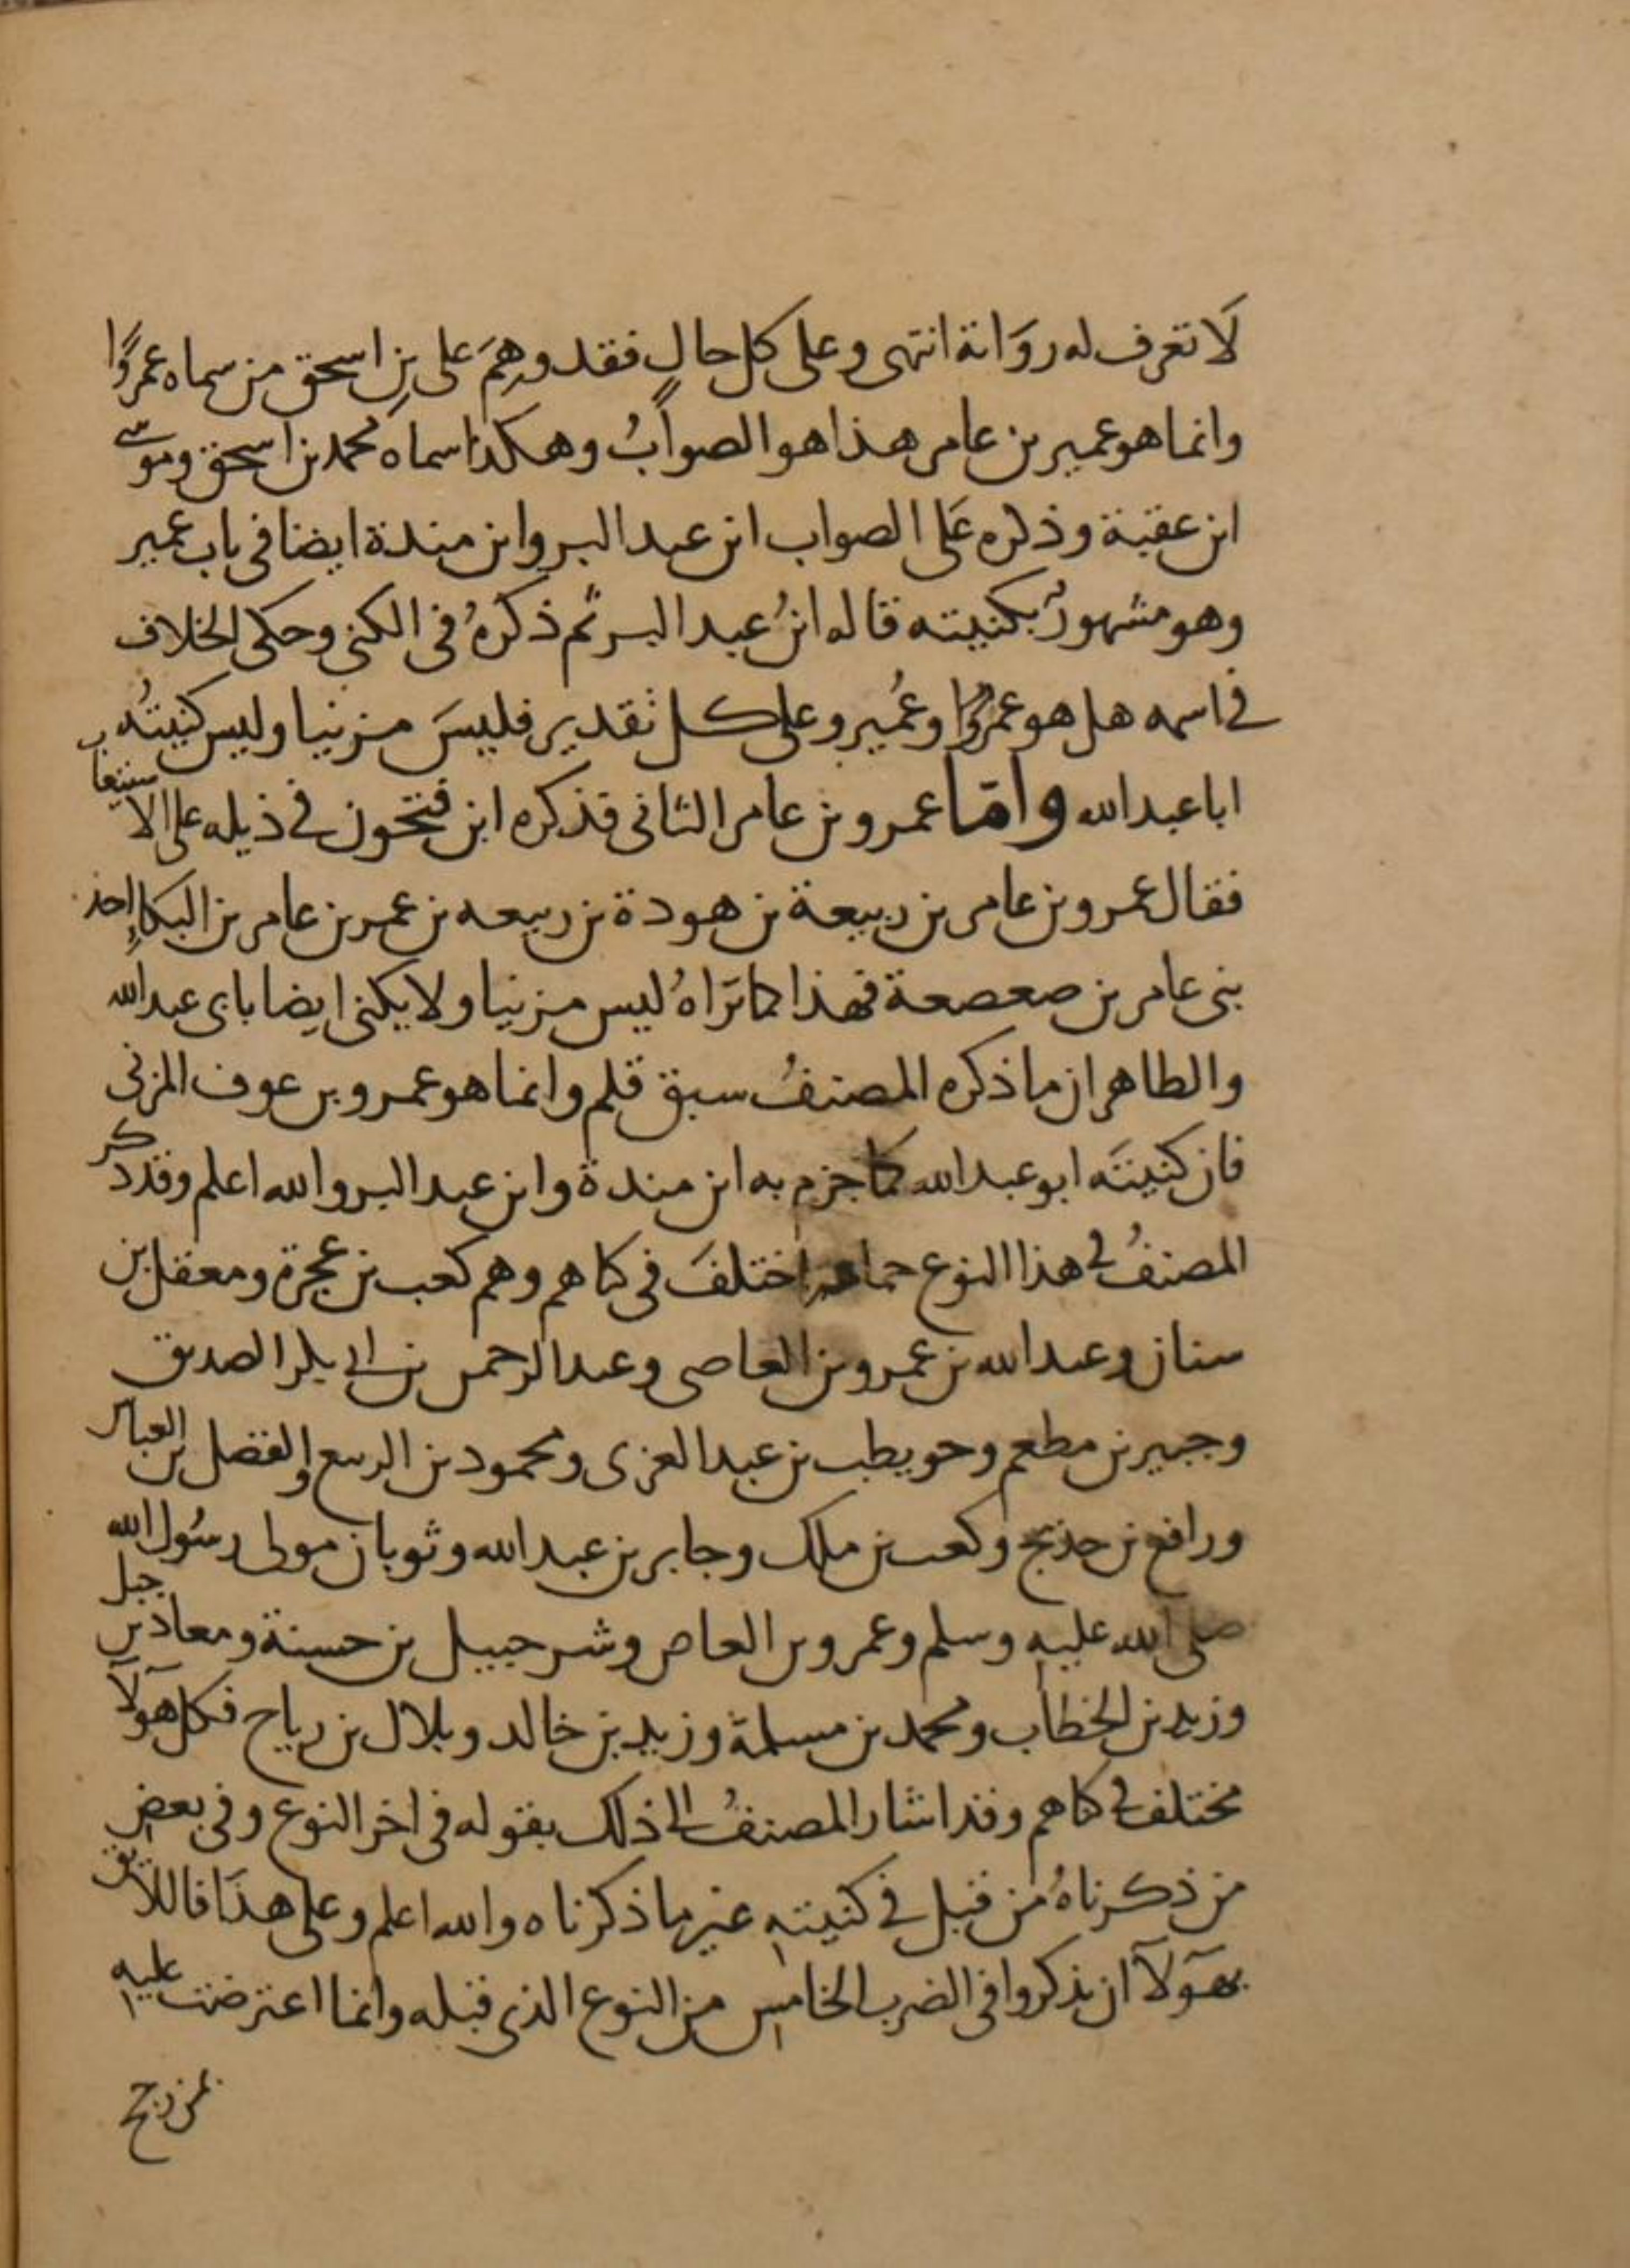 لَا تعرف له روَاية انتهى وعلى كل حالٍ فقد وهِمَ على بن اسحق من سماه عمروًا
وانما هو عمير بن عامر هذا هو الصوابُ وهكذا سماه محمد بن اسحق وموسى
ابن عقبة وذكره عَلى الصواب ابن عبد البر وابن مندة ايضا فى باب عمير
وهو مشهورٌ بكنيته قاله ابنُ عبد البر ثم ذكرهُ فى الكنى وحكى الخلاف
فى اسمه هل هو عمروٌ او عُمير وعلى كل تقدير فليسَ مزنيا وليس كنيتُه
ابا عبد الله وامّا عمرو بن عامر الثانى فذكره ابن فتحون فى ذيله على الاستيعاب
فقال عمرو بن عامر بن ربيعة بن هودة بن ربيعه بن عمر بن عامر بن البكاءِ احد
بنى عامر بن صعصعة فهذا كما ترَاهُ ليس مزنيا ولا يكنى ايضا بابى عبد الله
والظاهر ان ما ذكره المصنفُ سبق قلم وانما هو عمرو بن عوف المزنى
فان كنيتَه ابو عبد الله كما جزم به ابن مندة وابن عبد البر والله اعلم وقد ذكر
المصنفُ فى هذا النوع جماعة اختلفَ فى كناهم وهم كعب بن عجرة ومعقل بن
سنان وعبد الله بن عمرو بن العاصى وعبد الرحمن بن ابى بكر الصديق
وجبير بن مطعم وحويطب بن عبد العزى ومحمود بن الربيع والفضل بن العباس
ورافع بن خديج وكعب بن ملك وجابر بن عبد الله وثوبان مولى رسُول الله
صلى الله عليه وسلم وعمرو بن العاص وشرحبيل بن حسنة ومعاذ بن جبل
وزيد بن الخطاب ومحمد بن مسلمة وزيد بن خالد وبلال بن رباح فكل هولآ
مختلف فى كناهم وقد اشار المصنفُ الى ذلك بقوله فى اخر النوع وفى بعض
من ذكرناهُ من قبل فى كنيته غير ما ذكرناه والله اعلم وعلى هذَا فاللائق
بهوَلآ ان يذكروا فى الضرب الخامس من النوع الذى قبله وانما اعترضت عليه